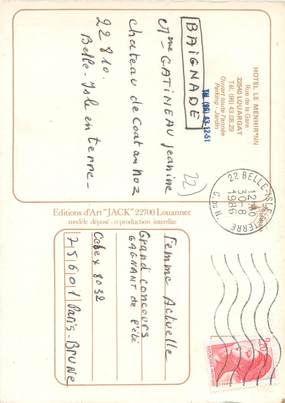 HOTEL LE MENHIR*NN
Rue de la Gare
22540 LOUARGAT
Tél. (96) 43.06.29
Ouvert toute l'année
Parking - Jardin
Tél. (96) 43-12-51
BAIGNADE
Mme GATINEAU jeanine
chateau de Coat an noz
22810.
Belle-Isle en terre-
22)
22 BELLE-ISLE-EN-TERRE
12H
30-8
1986
C. DU N.
Editions d'Art "JACK" 22700 Louannec
modèle déposé - reproduction interdite
Femme Actuelle
Grand concours
GAGNANT de l'été
Cedex 8032
75601 Paris-BRUNE